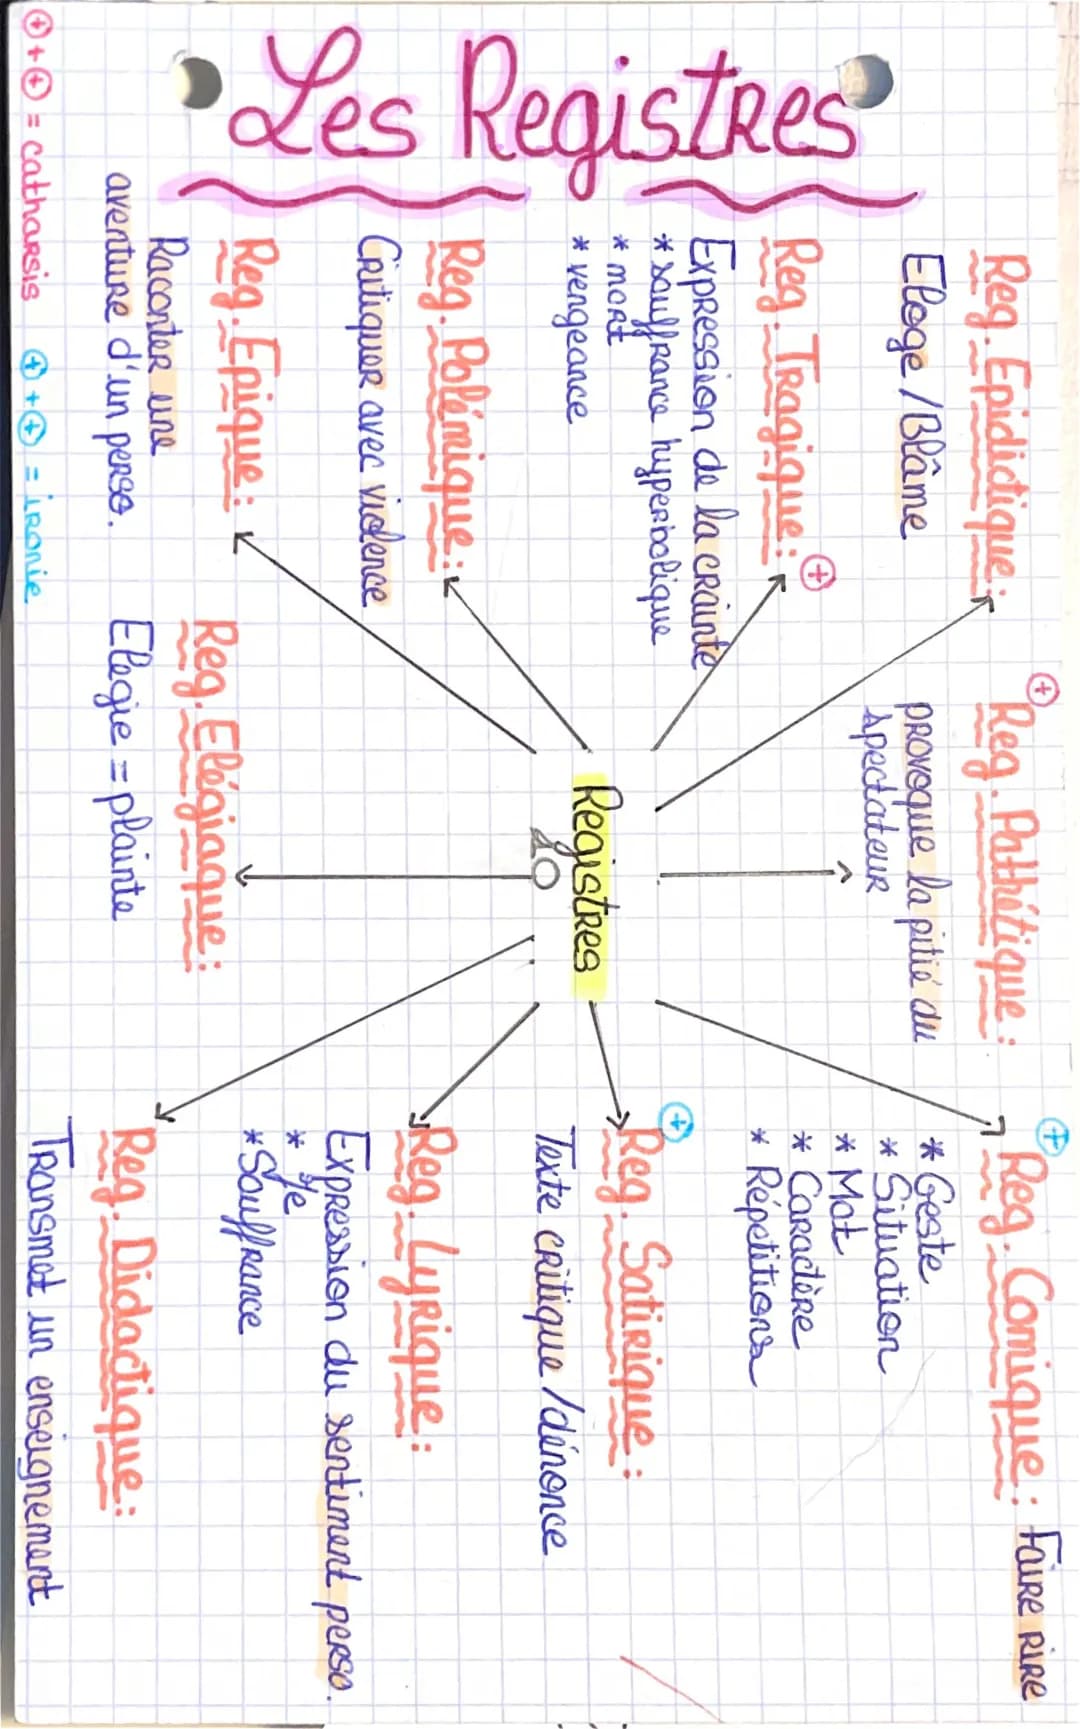 Les Registres
Reg. Epidictique :
Eloge / Blâme
Reg. Pathétique :
provoque la pitié du
spectateur
Reg. Comique : Faire rire
* Geste
* Situation
* Mot
* Caractère
* Répétitions
Reg. Tragique :
Expression de la crainte
* souffrance hyperbolique
* mort
* vengeance
Registres
10
Reg. Satirique :
Texte critique / dénonce
Reg. Polémique :
Critiquer avec violence
Reg. Lyrique :
Expression du sentiment perso.
* Je
* Souffrance
Reg. Epique :
Raconter une
aventure d'un perso.
Reg. Elégiaque :
Elegie = plainte
Reg. Didactique :
Transmet un enseignement
⊕ + ⊕ = catharsis ⊕ + ⊕ = ironie